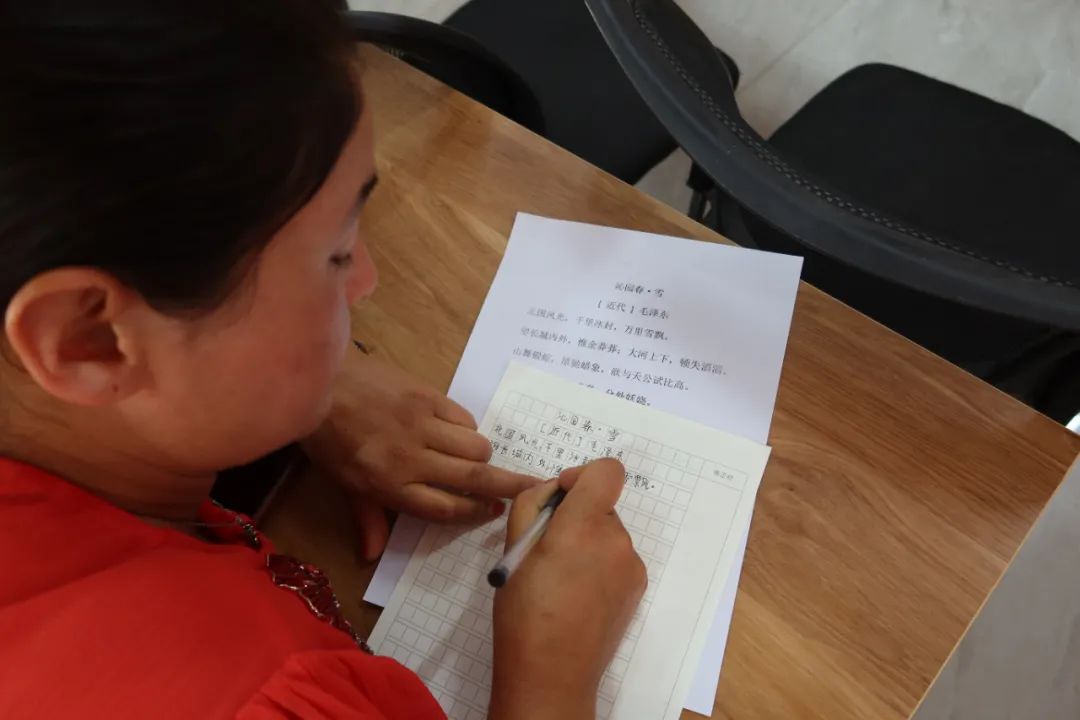 沁园春·雪
【近代】毛泽东
北国风光，千里冰封，万里雪飘。
望长城内外，惟余莽莽；大河上下，顿失滔滔。
山舞银蛇，原驰蜡象，欲与天公试比高。
分外妖娆。
沁园春·雪
【近代】毛泽东
北国风光，千里冰
飘。
长城内外